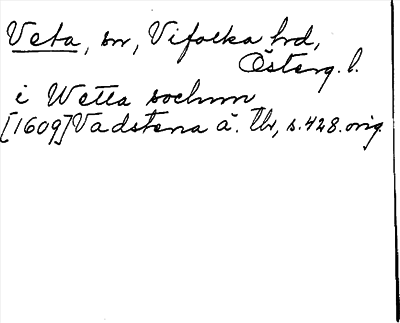 Veta, sn, Vifolka hrd,
Österg. l.
i Wetta sochnn
[1609] Vadstena ä. Tb, s. 428. orig.